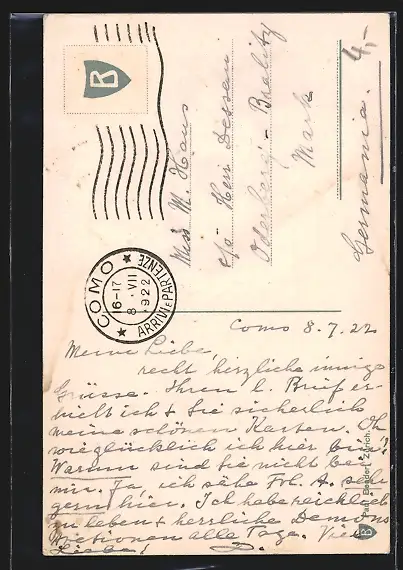 B
Miss M. Hans
c/o Herr Dessau
Oderberg - Bralitz
Mark
Germania.
4,-
COMO
16-17
8 · VII
1922
ARRIVI E PARTENZE
Como 8.7.22
Meine Liebe,
recht herzliche innige
Grüsse. Ihren l. Brief er-
hielt ich & Sie sicherlich
meine schönen Karten. Oh
wie glücklich ich hier bin!
Warum sind Sie nicht bei
mir. Ja ich sehe Frl. A. sehr
gern hier. Ich habe reichlich
zu leben & herrliche Demons
trationen alle Tage. Viel
Liebe!
Paul Bender, Zürich.
B